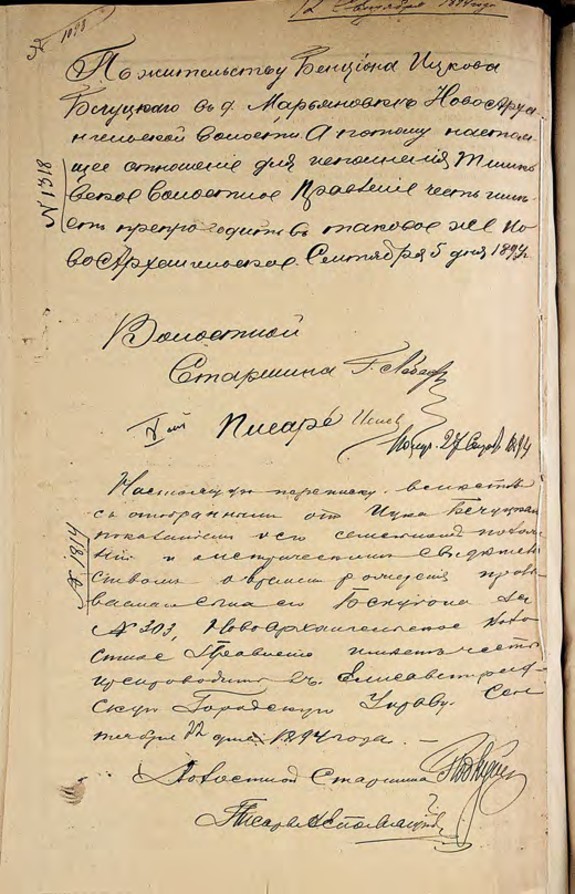 № 1098
12 Сентября 1894 года
По жительству Бенціона Ицкова
Бечуцкаго въ д. Марьяновкѣ НовоАрха
нгельской волости. А потому настоя-
щее отношеніе для исполненія Тишко
вское Волостное Правленіе честь имѣ-
етъ препроводить въ таковое же Но
воАрхангельское. Сентября 5 дня 1894 г.
№ 1318
Волостной
Старшина
Писарь
27 1894
Настоящую переписку вмѣстѣ
съ отобранными отъ Ицка Бечуцкаго
показаніемъ о его семейномъ положе
ніи и метрическимъ свидѣтель
ствомъ о времени рожденія
сына его за
№ 303, НовоАрхангельское Воло
стное Правленіе имѣетъ честь
препроводить въ Елисаветград
скую Городскую Управу. Сен
тября 22 дня 1894 года. —
№ 1814
Волостной Старшина
Писарь